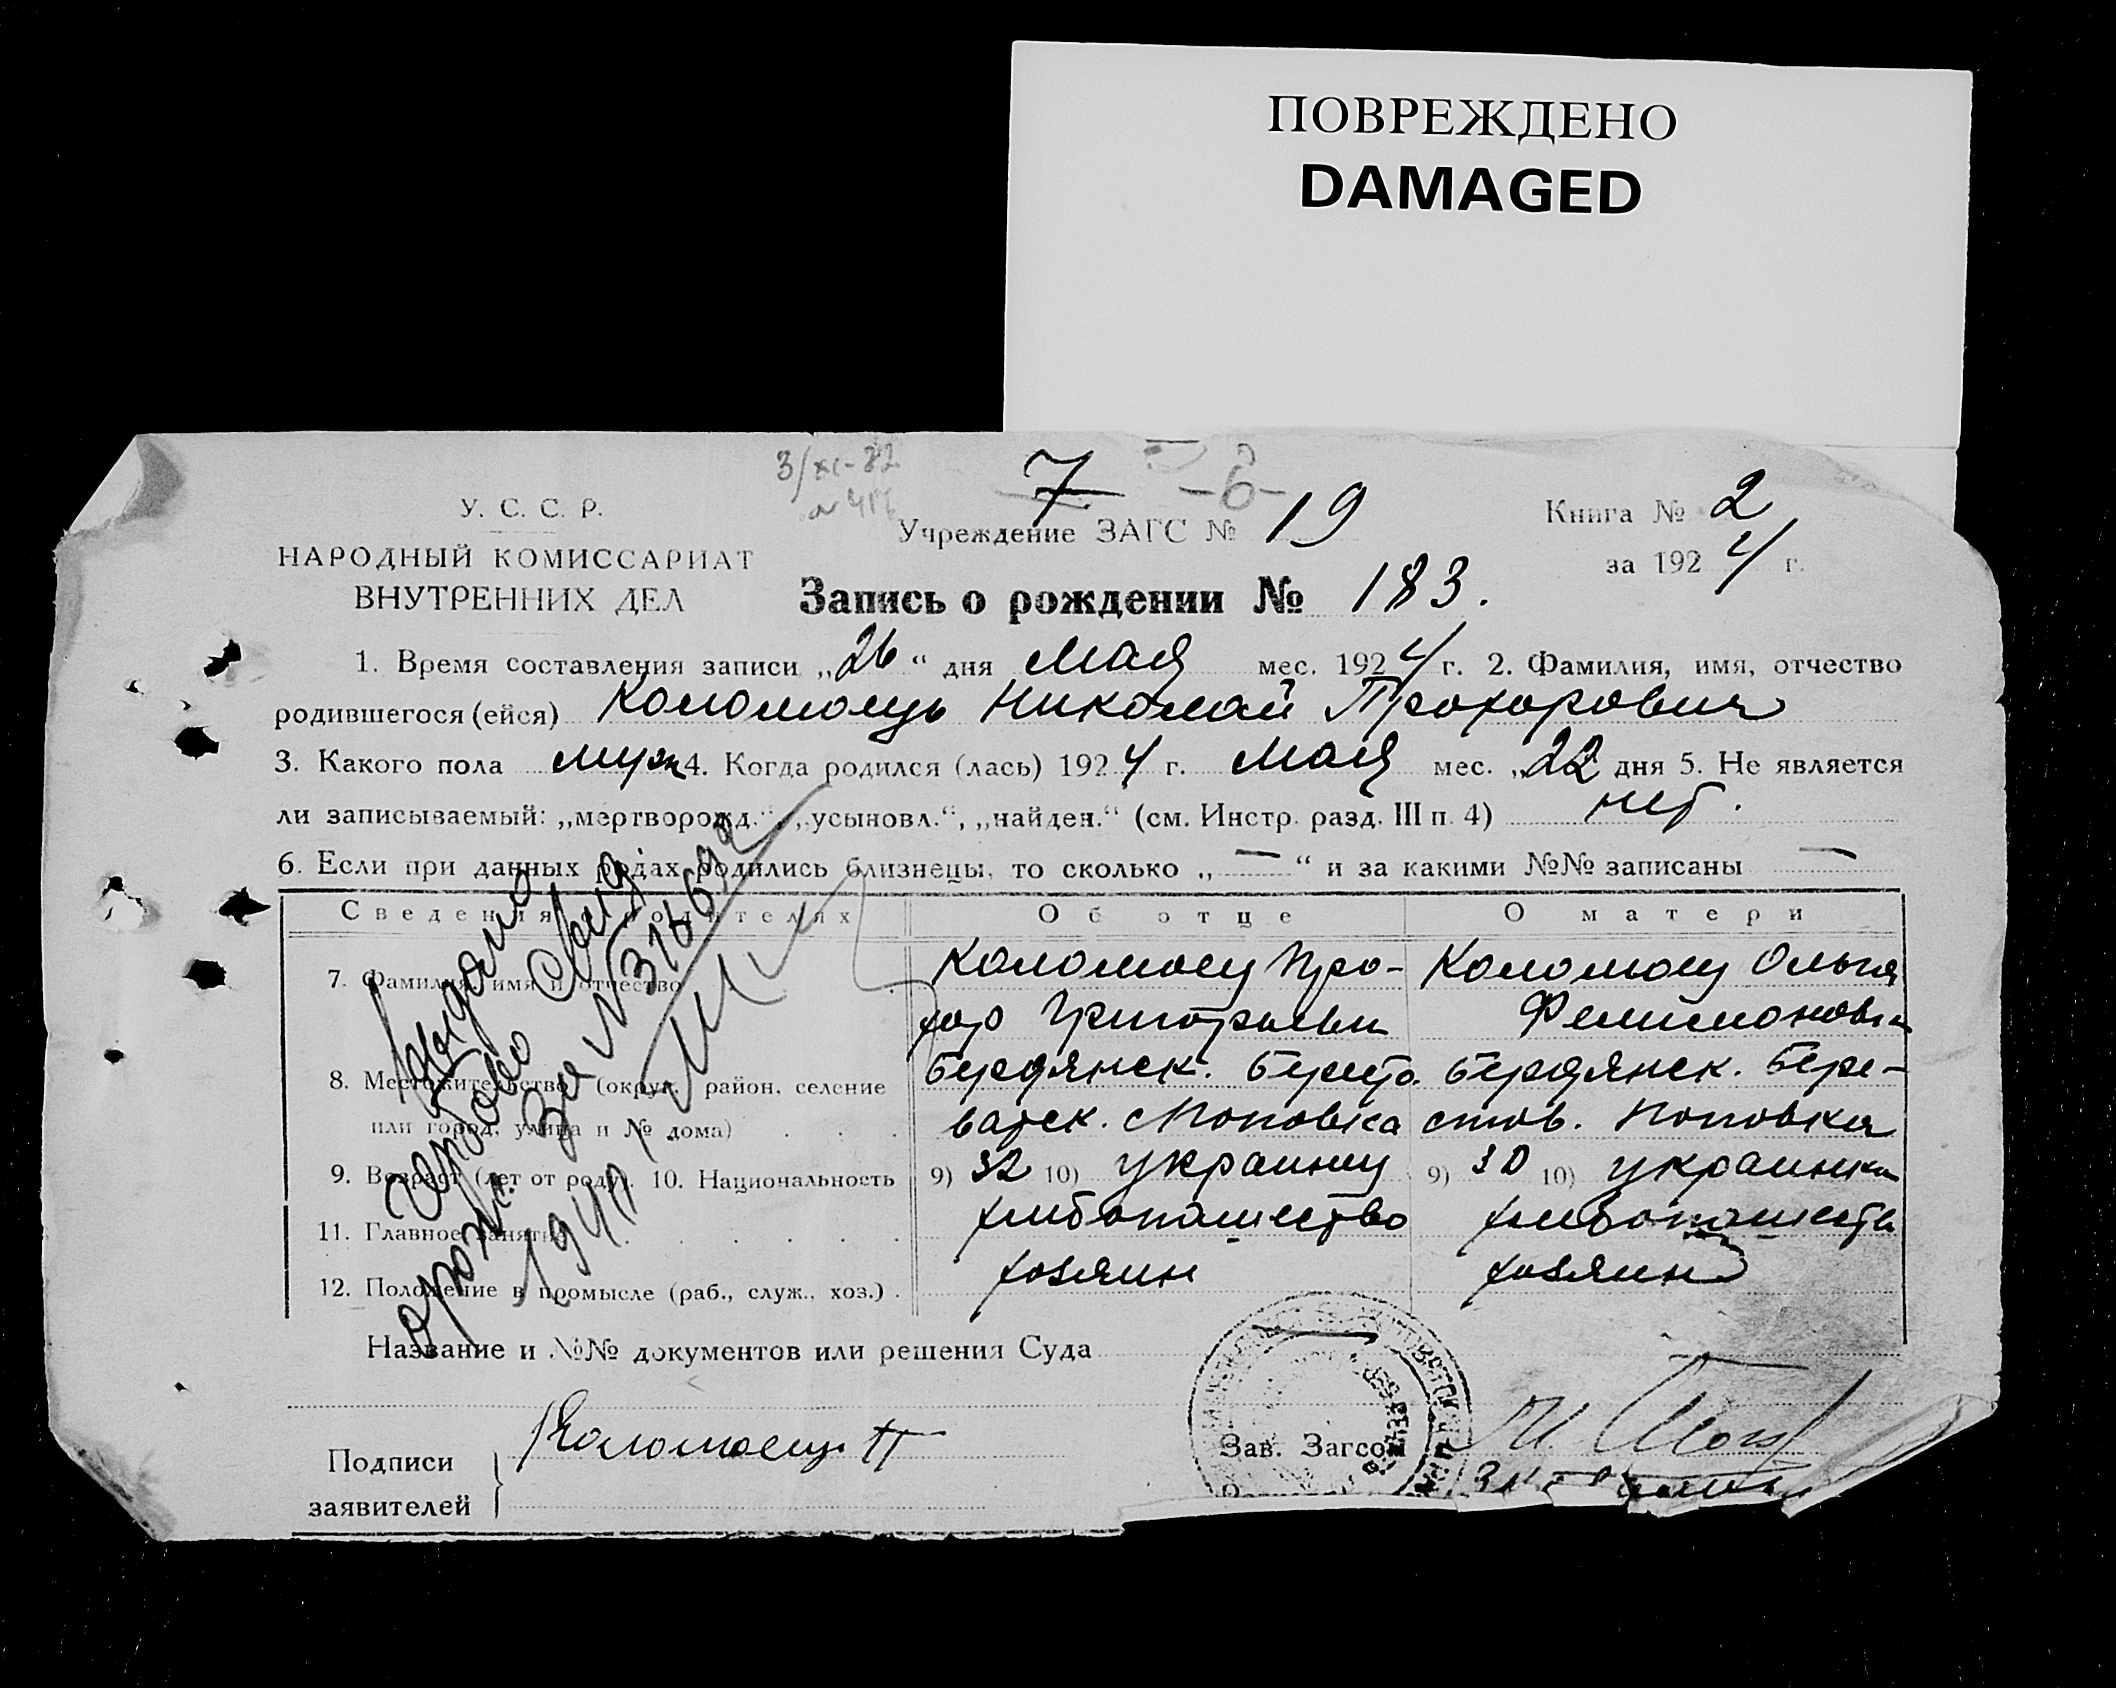 ПОВРЕЖДЕНО
DAMAGED
7 -6-
У. С. С. Р.
НАРОДНЫЙ КОМИССАРИАТ
ВНУТРЕННИХ ДЕЛ
Учреждение ЗАГС № 19
Книга № 2
за 1924 г.
Запись о рождении № 183.
1. Время составления записи „26“ дня Мая мес. 1924 г. 2. Фамилия, имя, отчество
родившегося (ейся) Коломоець Николай Прохорович
3. Какого пола муж 4. Когда родился (лась) 1924 г. Мая мес. „22 дня 5. Не является
ли записываемый: „мертворожд.“, „усыновл.“, „найден.“ (см. Инстр. разд. III п. 4) нет.
6. Если при данных родах родились близнецы, то сколько „—“ и за какими №№ записаны —
Сведения о родителях Об отце О матери
7. Фамилия, имя и отчество Коломоец Про- Коломоец Ольга
хор Григорьеви Филимоновн
8. Местожительство (округ, район, селение Бердянск. Бересто Бердянск. Бере-
или город, улица и № дома) ватск. Поповка стов. Поповка
9. Возраст (лет от роду). 10. Национальность 9) 32 10) украинец 9) 30 10) украинка
11. Главное занятие хлебопашество хлебопашеств
12. Положение в промысле (раб., служ., хоз.) хозяин хозяин
Выдано
повто Свид
за №
1941 г.
Название и №№ документов или решения Суда —
Подписи
заявителей
Коломоец П
Зав. Загсом